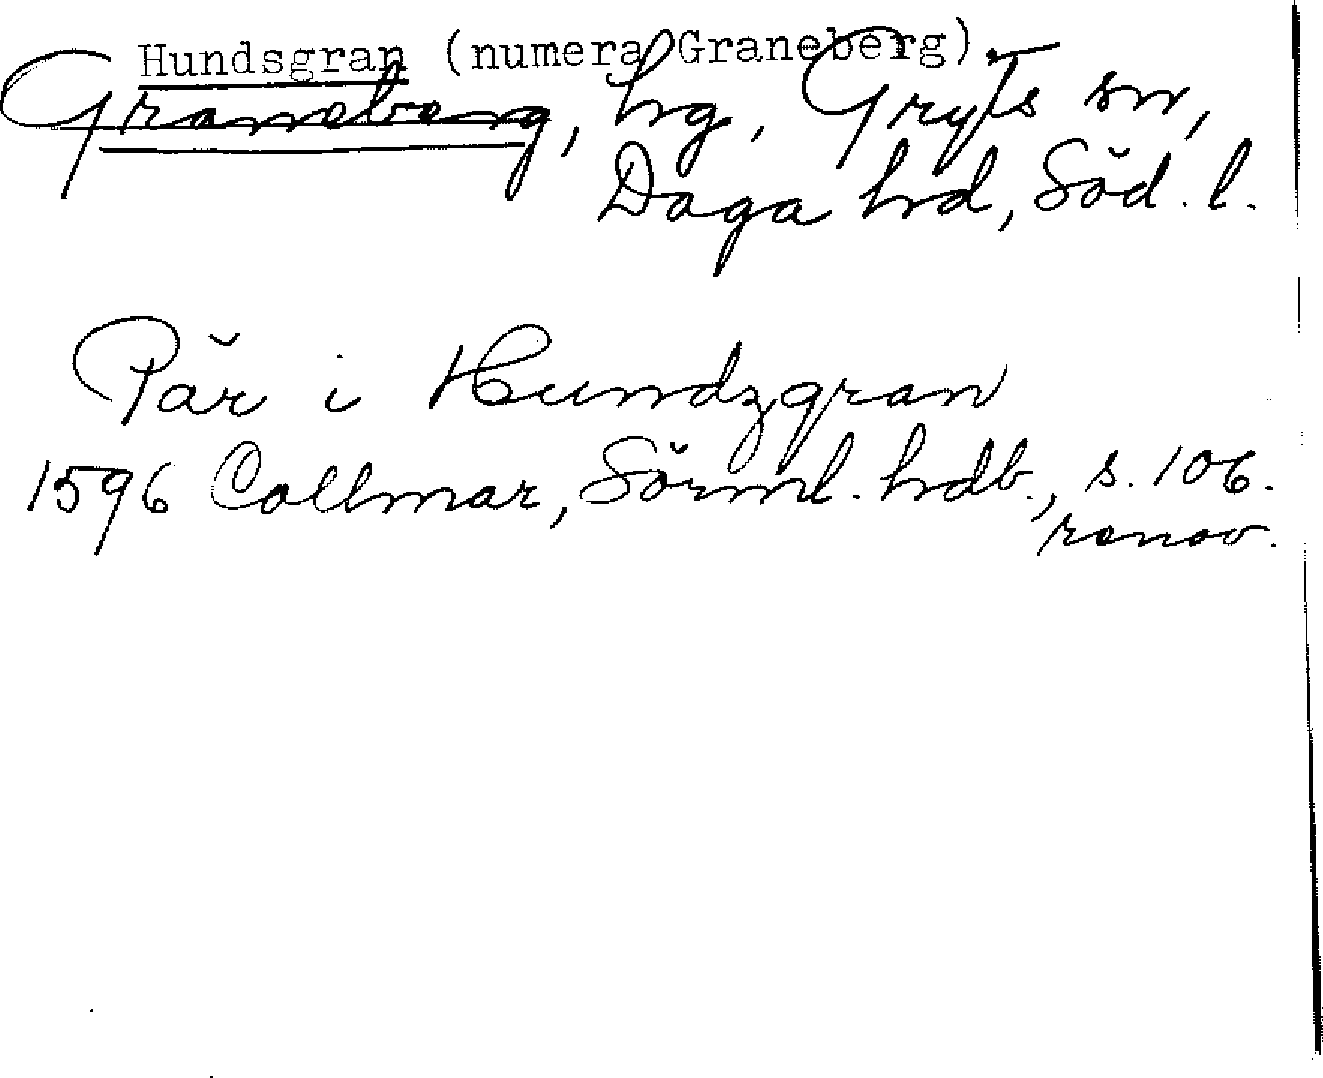 Hundsgran (numera Graneberg)
Graneberg, hg, Gryts sn,
Daga hrd, Söd. l.
Pär i Hundzgran
1596 Collmar, Sörml. hdb., s. 106.
renov.